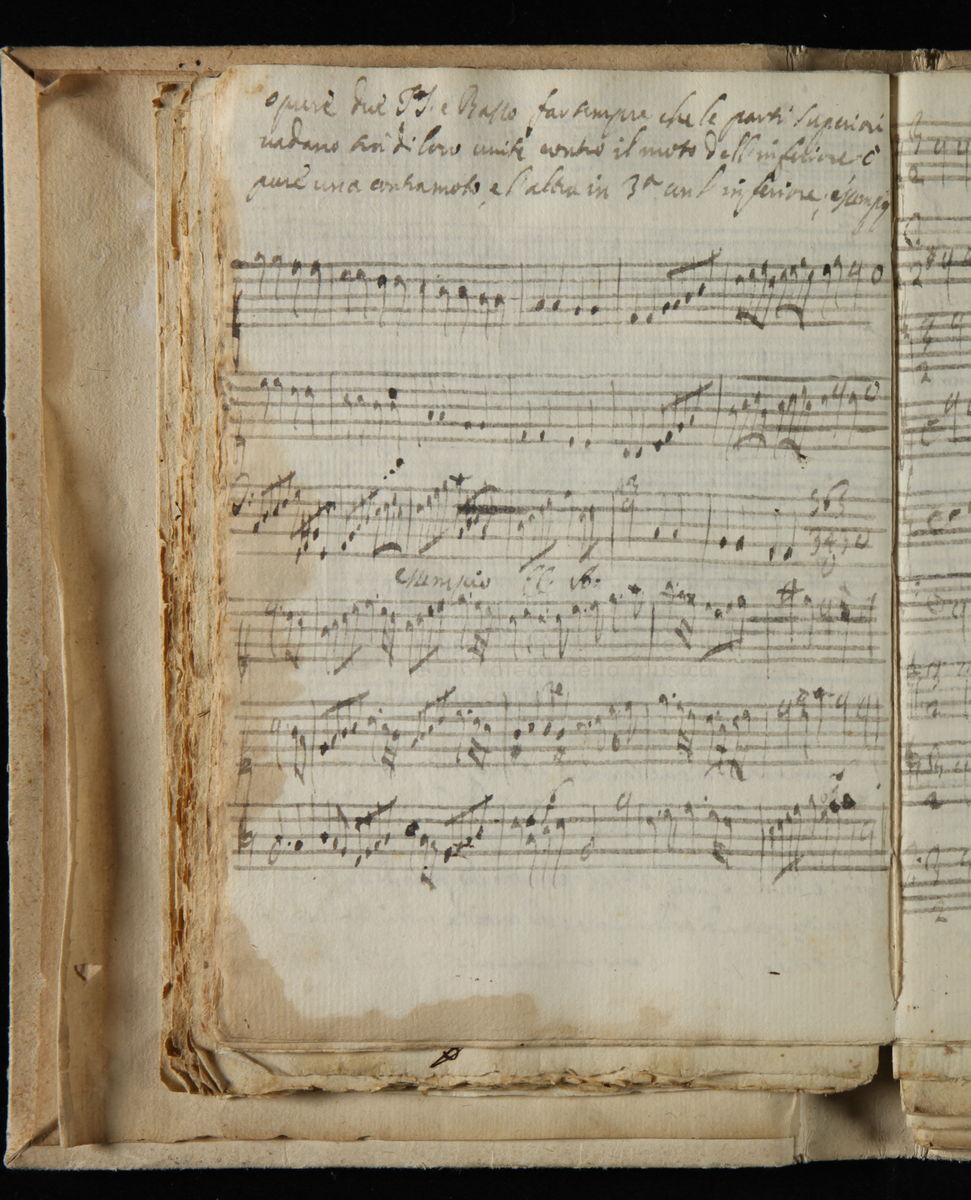 opure due e Basso far sempre che le parti superiori
vadano frà di loro unite contro il moto dell'inferiore ò
pure una contramoto, e l'altra in 3ª con l'inferiore, esempj
esempio